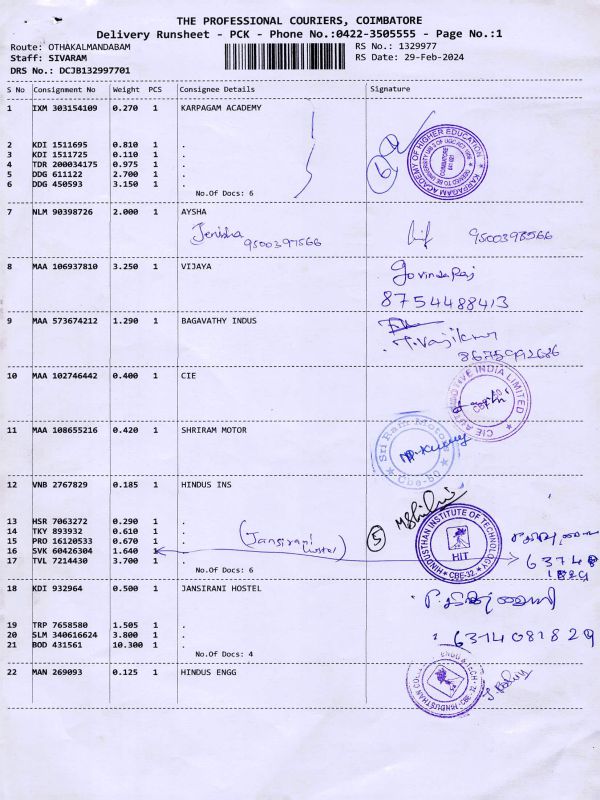 THE PROFESSIONAL COURIERS, COIMBATORE
Delivery Runsheet - PCK - Phone No.:0422-3505555 - Page No.:1
Route: OTHAKALMANDABAM RS No.: 1329977
Staff: SIVARAM RS Date: 29-Feb-2024
DRS No.: DCJB132997701
S No Consignment No Weight PCS Consignee Details Signature
1 IXM 303154109 0.270 1 KARPAGAM ACADEMY
2 KDI 1511695 0.810 1 .
3 KDI 1511725 0.110 1 .
4 TDR 200034175 0.975 1 .
5 DDG 611122 2.700 1 .
6 DDG 450593 3.150 1 .
No.Of Docs: 6
KARPAGAM ACADEMY OF HIGHER EDUCATION
7 NLM 90398726 2.000 1 AYSHA
Jenisha
9500397566 9500398566
8 MAA 106937810 3.250 1 VIJAYA
Govindaraj
8754488413
9 MAA 573674212 1.290 1 BAGAVATHY INDUS
8675992686
10 MAA 102746442 0.400 1 CIE
CIE AUTOMOTIVE INDIA LIMITED
11 MAA 108655216 0.420 1 SHRIRAM MOTOR
Sri Ram Motors
Cbe-50
12 VNB 2767829 0.185 1 HINDUS INS
13 HSR 7063272 0.290 1 .
14 TKY 893932 0.610 1 .
15 PRO 16120533 0.670 1 .
16 SVK 60426304 1.640 1 .
17 TVL 7214430 3.700 1 .
No.Of Docs: 6
(Jansirani
hostel)
5
HINDUSTHAN INSTITUTE OF TECHNOLOGY
HIT
CBE-32
63748
1829
18 KDI 932964 0.500 1 JANSIRANI HOSTEL
19 TRP 7658580 1.505 1 .
20 SLM 340616624 3.800 1 .
21 BOD 431561 10.300 1 .
No.Of Docs: 4
6374081829
22 MAN 269093 0.125 1 HINDUS ENGG